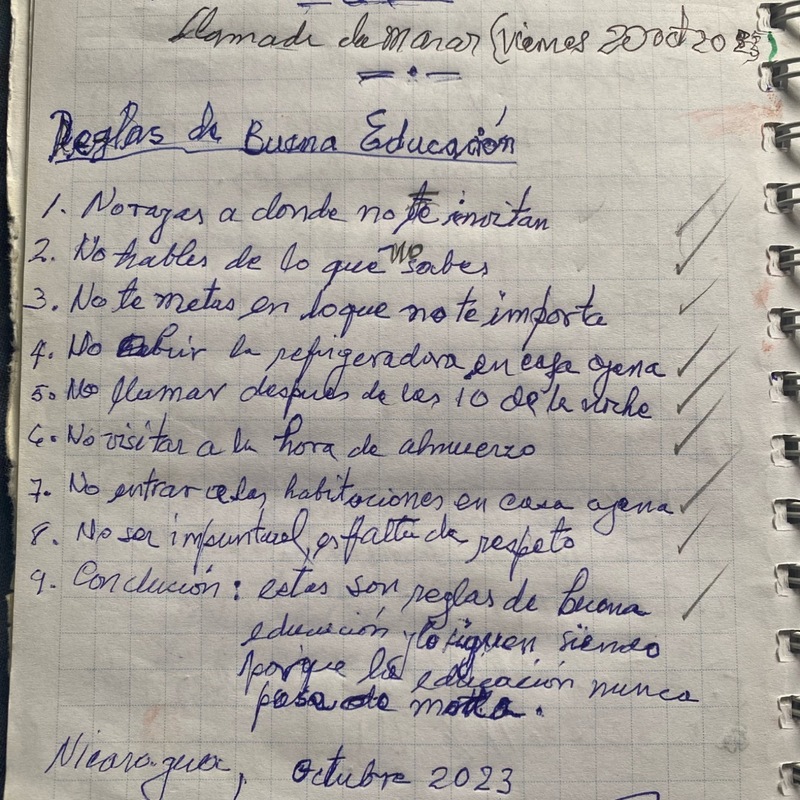 Llamada de (Viernes 20 oct 2023
Reglas de Buena Educación
1. No vayas a donde no te invitan
2. No hables de lo que no sabes
3. No te metas en lo que no te importa
4. No abrir la refrigeradora en casa ajena
5. No llamar despues de las 10 de la noche
6. No visitar a la hora de almuerzo
7. No entrar a las habitaciones en casa ajena
8. No ser impuntual, es falta de respeto
9. Conclución: estas son reglas de buena
educación y lo siguen siendo
porque la educación nunca
pasa de moda.
Nicaragua, octubre 2023